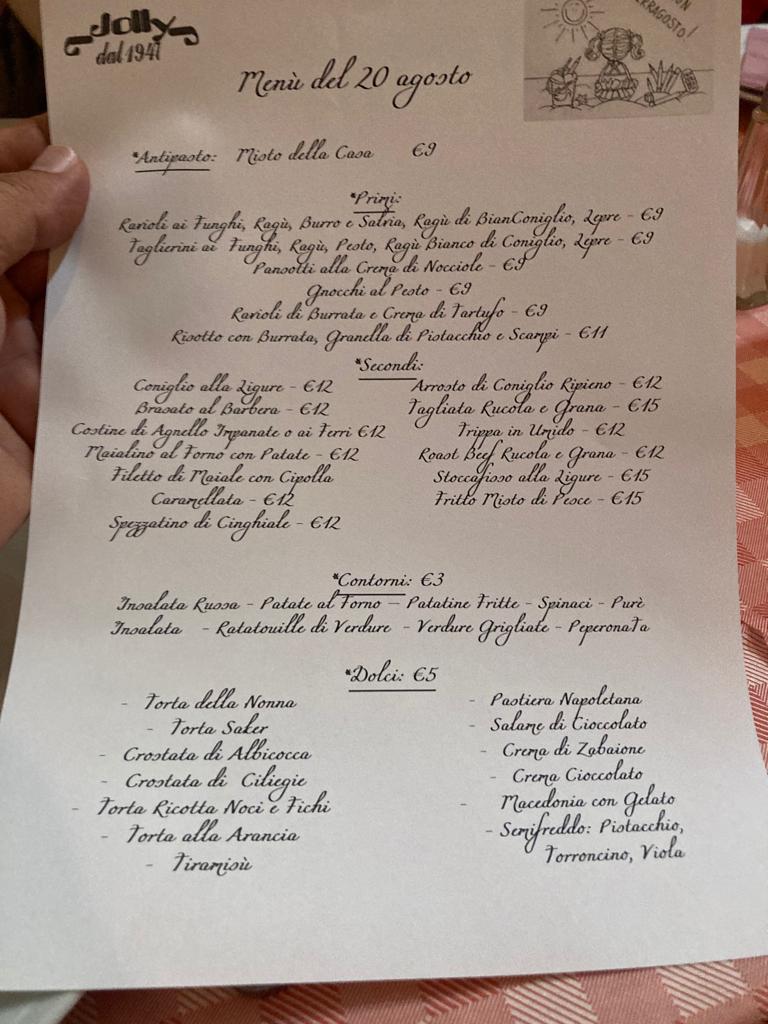 Jolly
dal 1947
RRAGOSTO!
Menù del 20 agosto
*Antipasto: Misto della Casa €9
*Primi:
Ravioli ai Funghi, Ragù, Burro e Salvia, Ragù di BianConiglio, Lepre - €9
Taglierini ai Funghi, Ragù, Pesto, Ragù Bianco di Coniglio, Lepre - €9
Pansotti alla Crema di Nocciole - €9
Gnocchi al Pesto - €9
Ravioli di Burrata e Crema di Tartufo - €9
Risotto con Burrata, Granella di Pistacchio e Scampi - €11
*Secondi:
Coniglio alla Ligure - €12
Brasato al Barbera - €12
Costine di Agnello Impanate o ai Ferri €12
Maialino al Forno con Patate - €12
Filetto di Maiale con Cipolla
Caramellata - €12
Spezzatino di Cinghiale - €12
Arrosto di Coniglio Ripieno - €12
Tagliata Rucola e Grana - €15
Trippa in Umido - €12
Roast Beef Rucola e Grana - €12
Stoccafisso alla Ligure - €15
Fritto Misto di Pesce - €15
*Contorni: €3
Insalata Russa - Patate al Forno – Patatine Fritte - Spinaci - Purè
Insalata - Ratatouille di Verdure - Verdure Grigliate - PeperonaTa
*Dolci: €5
- Torta della Nonna
- Torta Saker
- Crostata di Albicocca
- Crostata di Ciliegie
- Torta Ricotta Noci e Fichi
- Torta alla Arancia
- Tiramisù
- Pastiera Napoletana
- Salame di Cioccolato
- Crema di Zabaione
- Crema Cioccolato
- Macedonia con Gelato
- Semifreddo: Pistacchio,
Torroncino, Viola